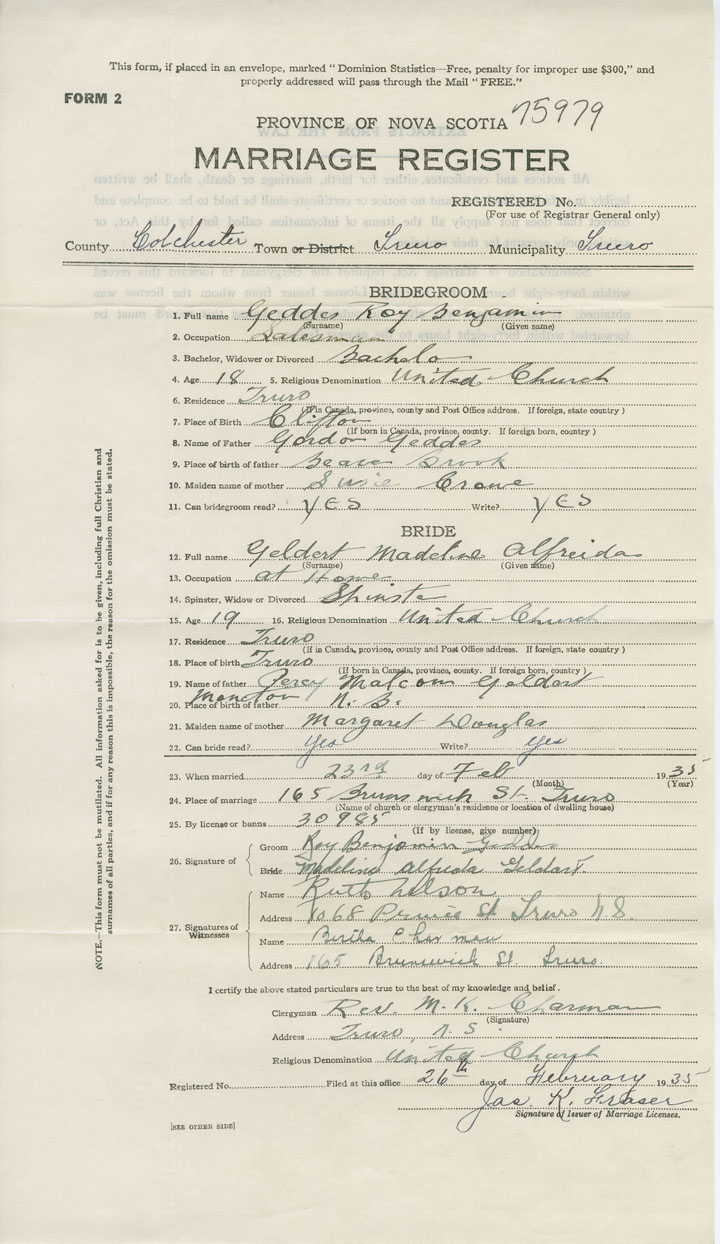 This form, if placed in an envelope, marked " Dominion Statistics—Free, penalty for improper use $300," and
properly addressed will pass through the Mail " FREE."
FORM 2
75979
PROVINCE OF NOVA SCOTIA
MARRIAGE REGISTER
REGISTERED No.
(For use of Registrar General only)
County Colchester Town or District Truro Municipality Truro
BRIDEGROOM
1. Full name Geddes Roy Benjamin
(Surname) (Given name)
2. Occupation Salesman
3. Bachelor, Widower or Divorced Bachelor
4. Age 18 5. Religious Denomination United Church
6. Residence Truro
(If in Canada, province, county and Post Office address. If foreign, state country )
7. Place of Birth Clifton
(If born in Canada, province, county. If foreign born, country )
8. Name of Father Gordon Geddes
9. Place of birth of father Beaver Brook
10. Maiden name of mother Susie Crowe
11. Can bridegroom read? YES Write? YES
BRIDE
12. Full name Geldert Madeline Alfreida
(Surname) (Given name)
13. Occupation at Home
14. Spinster, Widow or Divorced Spinster
15. Age 19 16. Religious Denomination United Church
17. Residence Truro
(If in Canada, province, county and Post Office address. If foreign, state country )
18. Place of birth Truro
(If born in Canada, province, county. If foreign born, country )
19. Name of father Percy Malcom Geldart
20. Place of birth of father Moncton N. B.
21. Maiden name of mother Margaret Douglas
22. Can bride read? Yes Write? Yes
23. When married 23rd day of Feb 1935
(Month) (Year)
24. Place of marriage 165 Brunswick St. Truro
(Name of church or clergyman's residence or location of dwelling house)
25. By license or banns 30985
(If by license, give number)
26. Signature of
Groom Roy Benjamin Geddes
Bride Madeline Alfreda Geldart.
27. Signatures of Witnesses
Name Ruth
Address 1068 Prince St Truro N.S.
Name Charman
Address 165 Brunswick St. Truro.
I certify the above stated particulars are true to the best of my knowledge and belief.
Clergyman Rev. M. K. Charman
(Signature)
Address Truro, N. S.
Religious Denomination United Church
Registered No. Filed at this office 26th day of February 1935
Jas. K. Fraser
Signature of Issuer of Marriage Licenses.
[SEE OTHER SIDE]
NOTE.—This form must not be mutilated. All information asked for is to be given, including full Christian and
surnames of all parties, and if for any reason this is impossible, the reason for the omission must be stated.